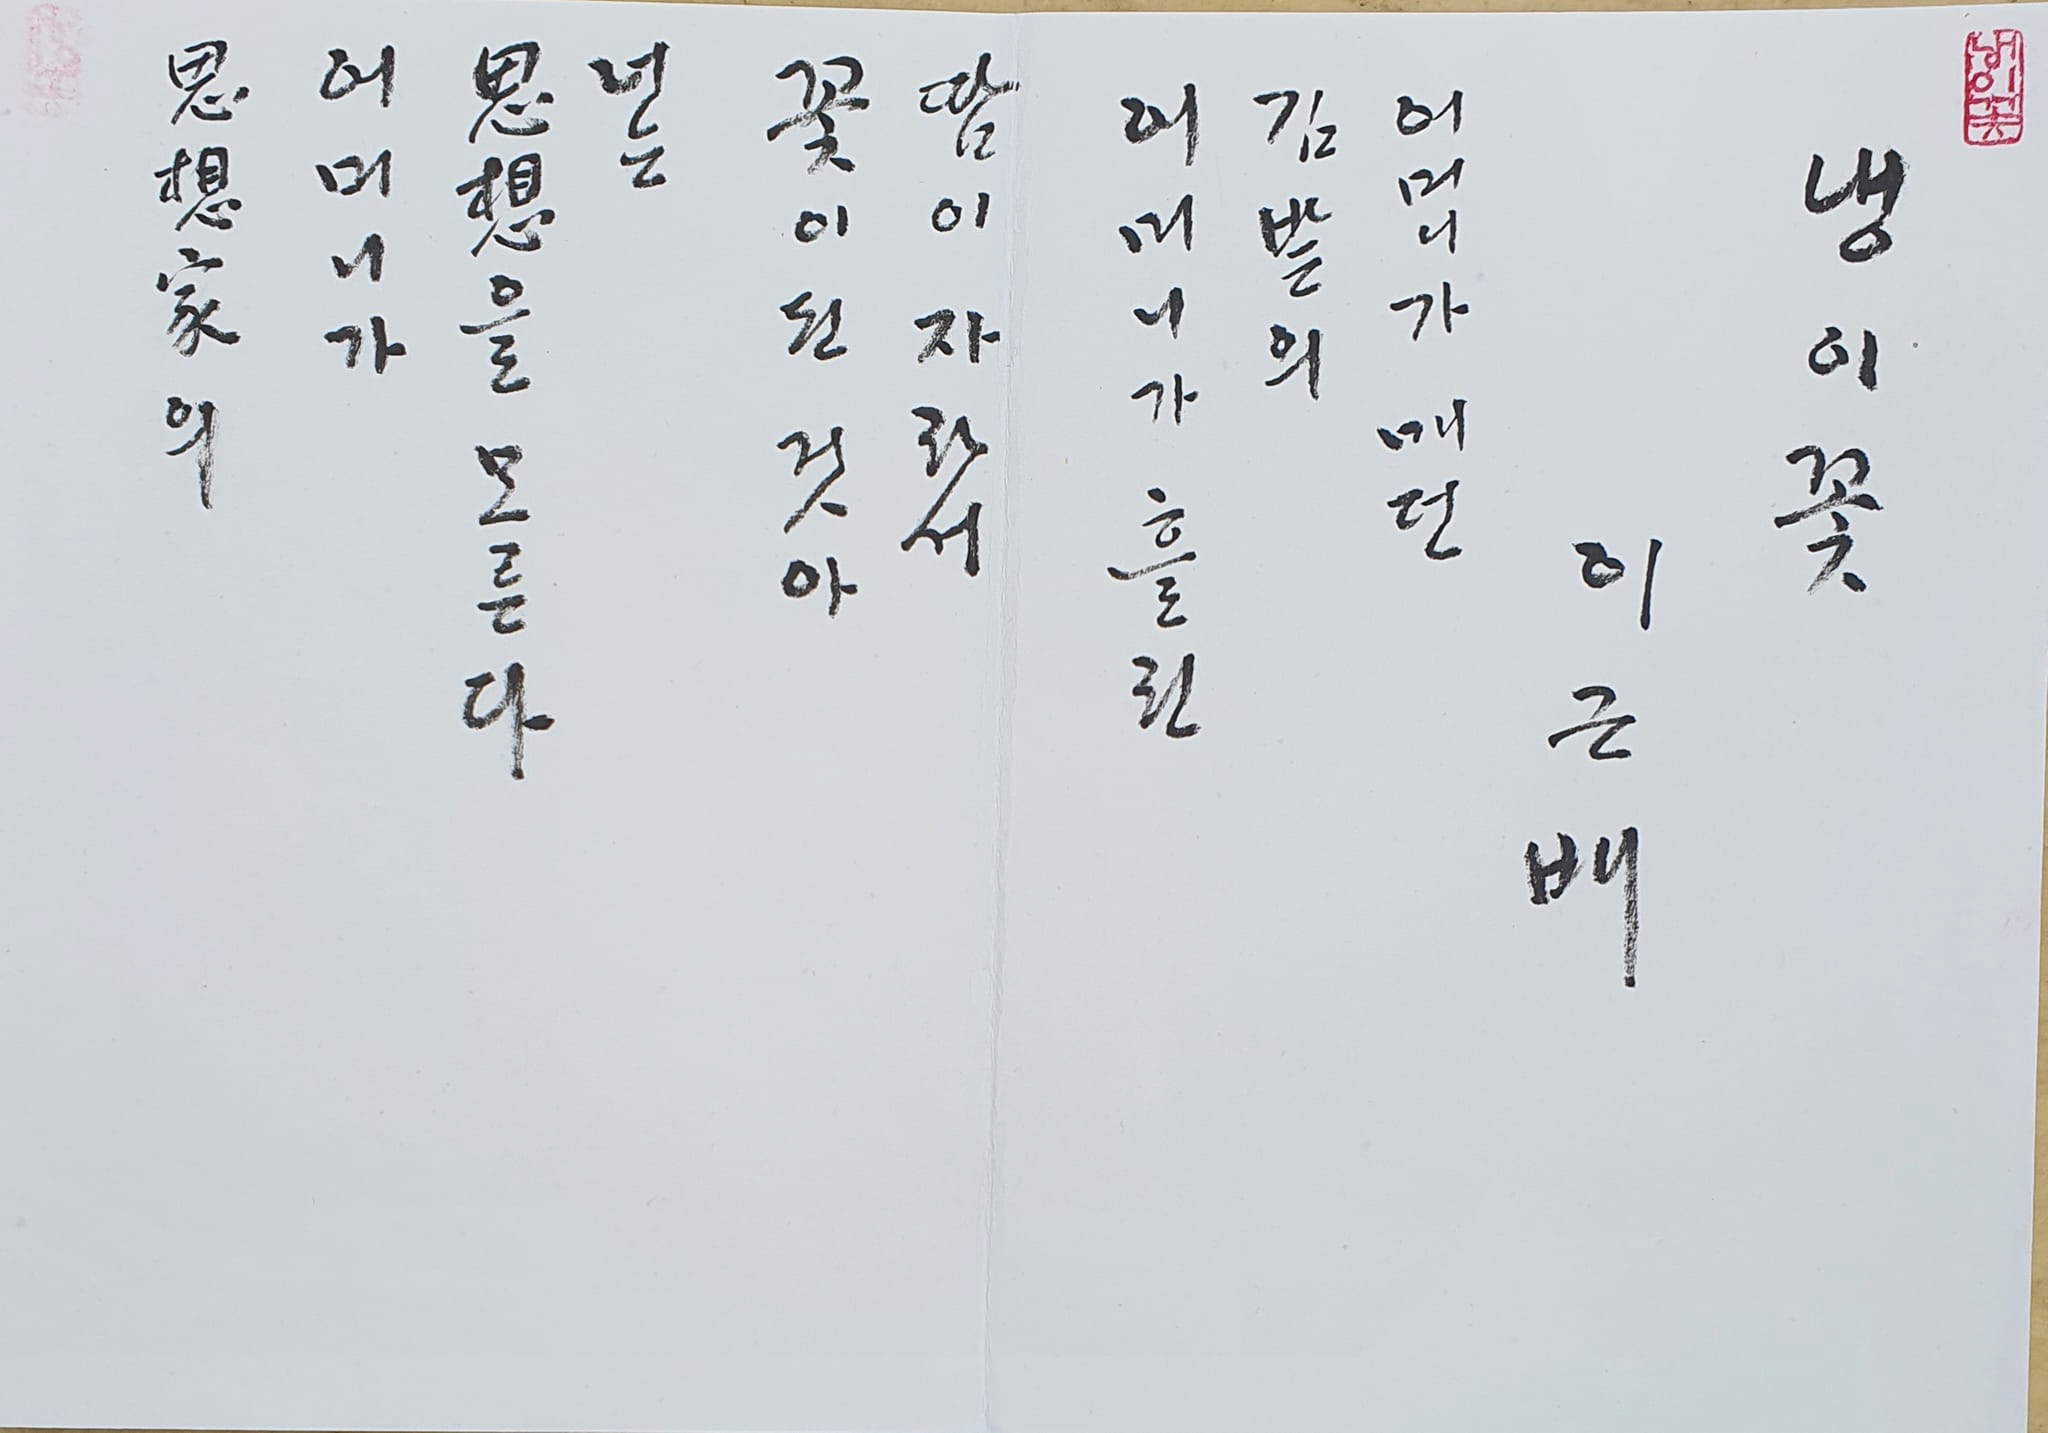 냉이꽃
냉이꽃
이근배
어머니가 매던
김밭의
어머니가 흘린
땀이 자라서
꽃이 된 것아
너는
思想을 모른다
어머니가
思想家의